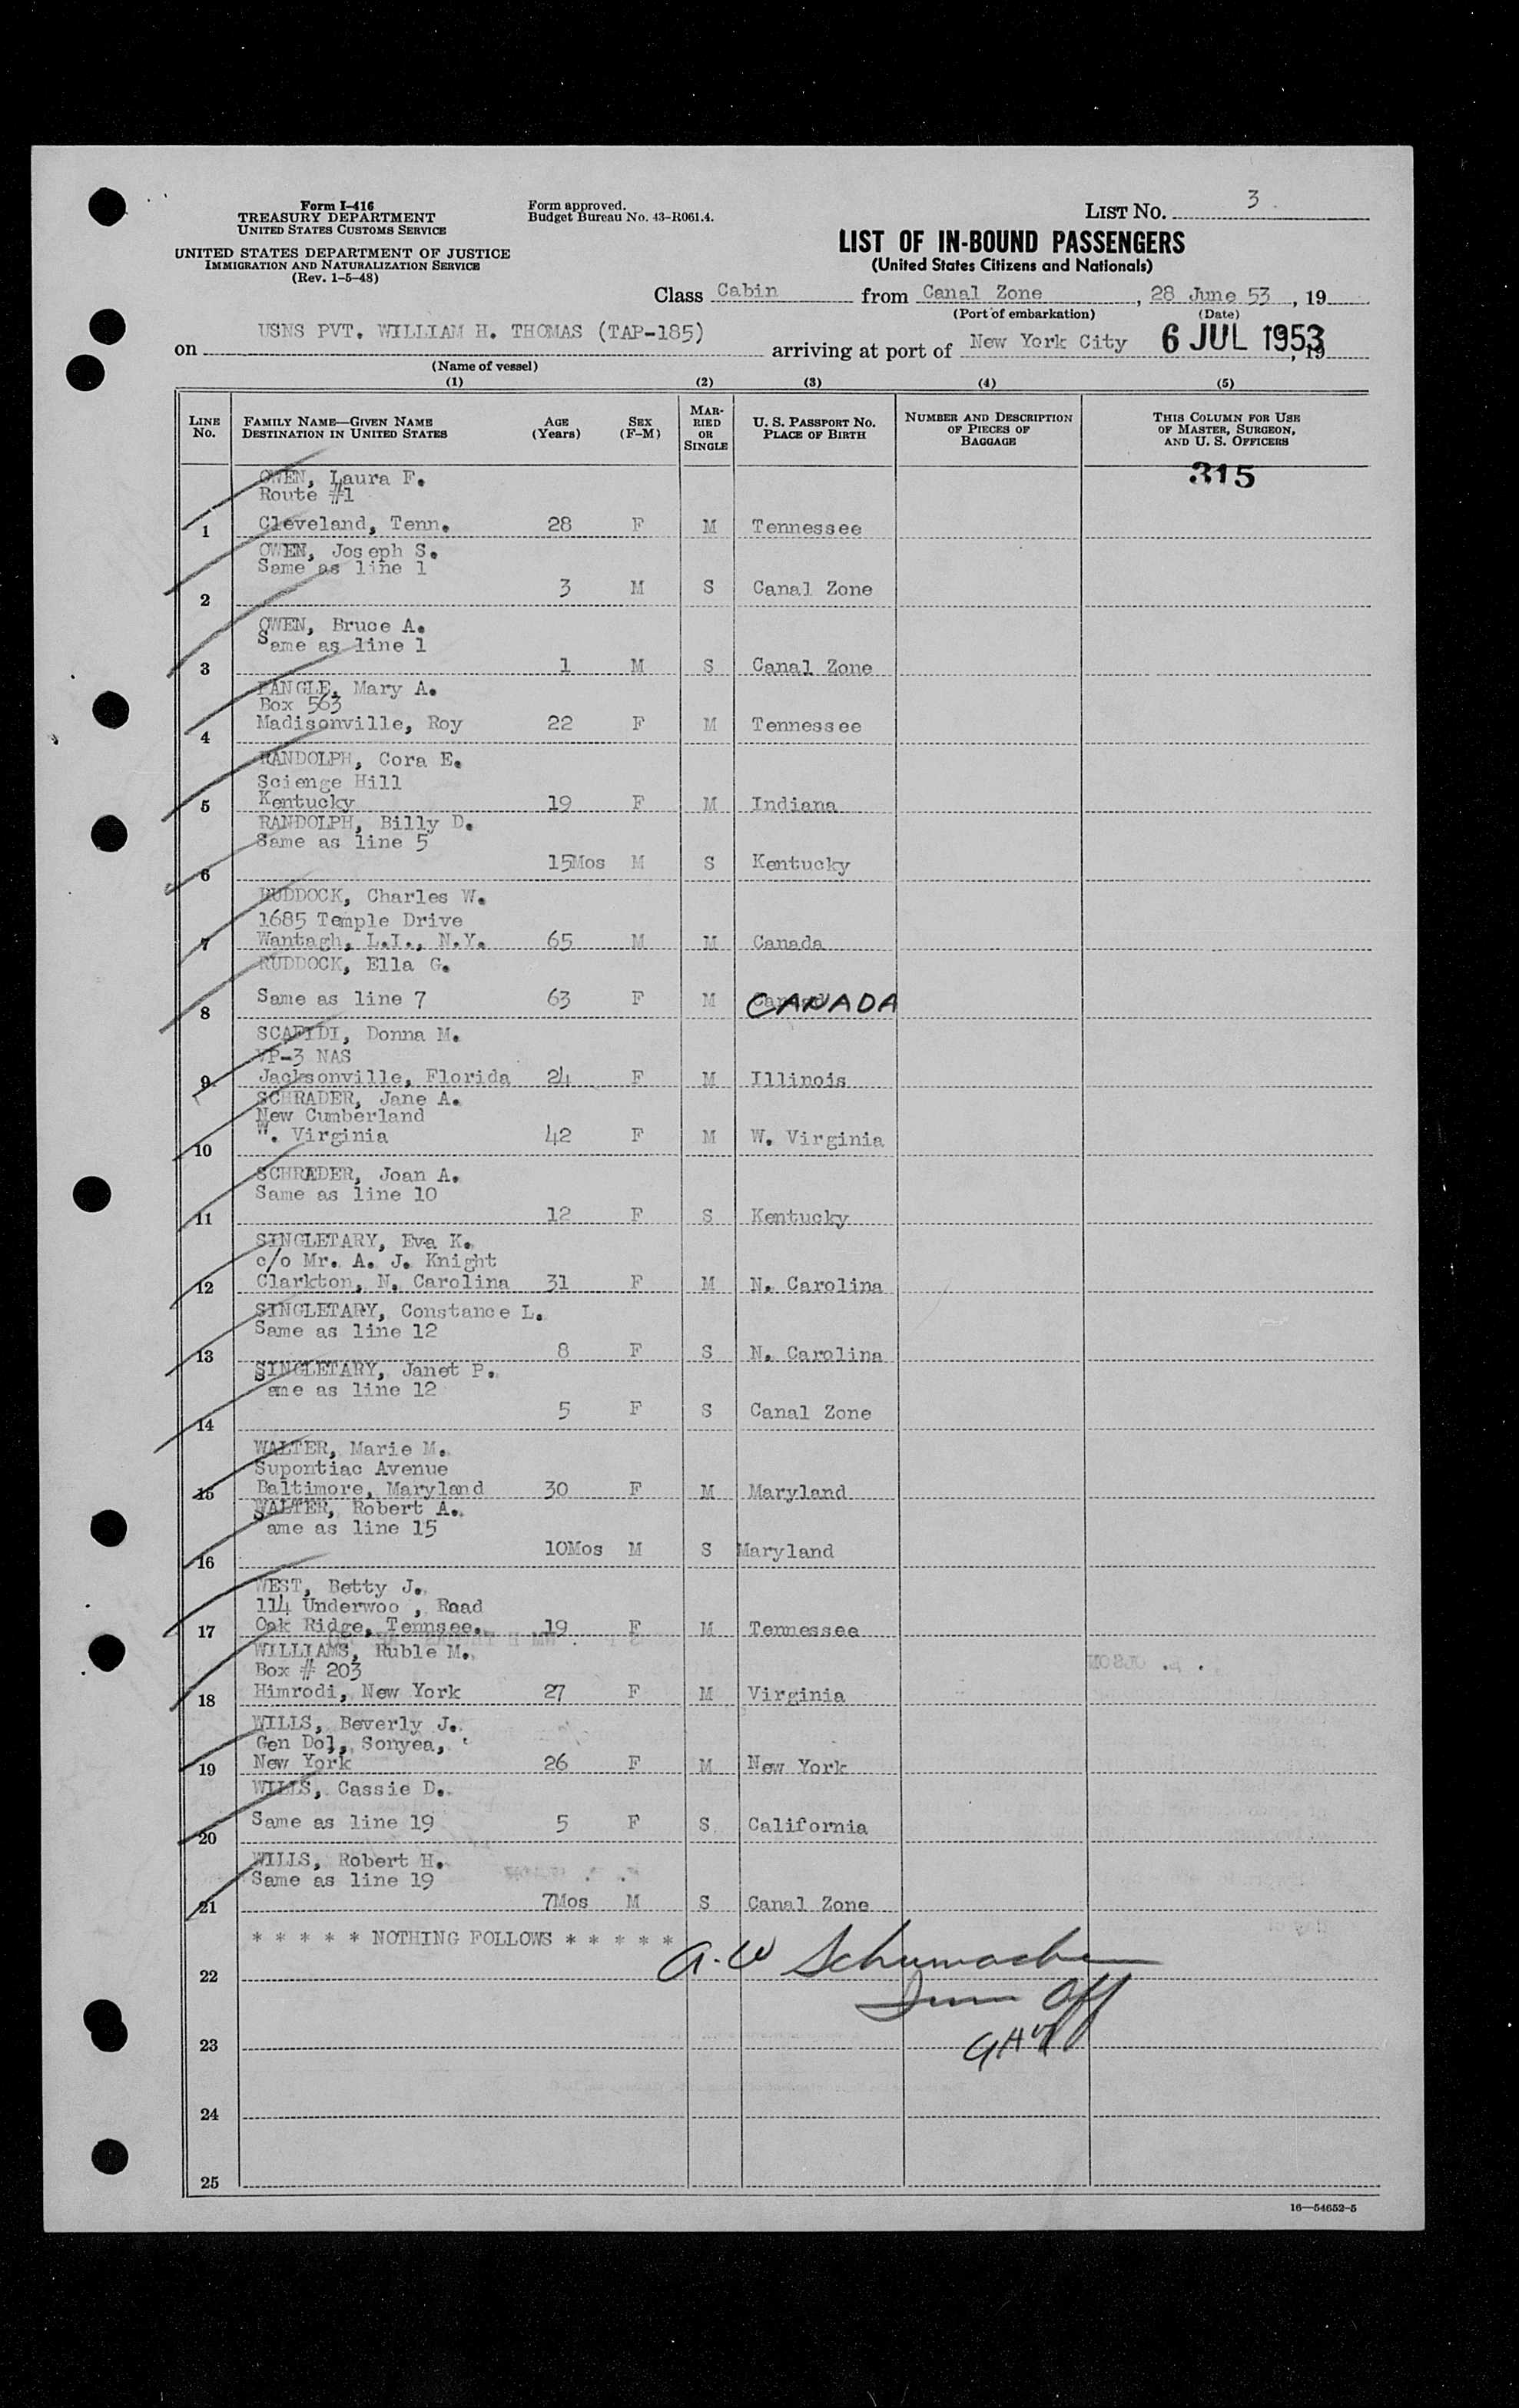 Form I-416
TREASURY DEPARTMENT
UNITED STATES CUSTOMS SERVICE
UNITED STATES DEPARTMENT OF JUSTICE
IMMIGRATION AND NATURALIZATION SERVICE
(Rev. 1-5-48)
Form approved.
Budget Bureau No. 43-R061.4.
LIST NO. 3
LIST OF IN-BOUND PASSENGERS
(United States Citizens and Nationals)
Class Cabin from Canal Zone, 28 June 53, 19
(Port of embarkation) (Date)
on USNS PVT. WILLIAM H. THOMAS (TAP-185) arriving at port of New York City 6 JUL 1953, 19
(Name of vessel)
(1) (2) (3) (4) (5)
LINE NO. FAMILY NAME—GIVEN NAME DESTINATION IN UNITED STATES AGE (Years) SEX (F-M) MARRIED OR SINGLE U. S. PASSPORT NO. PLACE OF BIRTH NUMBER AND DESCRIPTION OF PIECES OF BAGGAGE THIS COLUMN FOR USE OF MASTER, SURGEON, AND U. S. OFFICERS
315
OWEN, Laura F.
Route #1
1 Cleveland, Tenn. 28 F M Tennessee
OWEN, Joseph S.
Same as line 1
2 3 M S Canal Zone
OWEN, Bruce A.
Same as line 1
3 1 M S Canal Zone
PANGLE, Mary A.
Box 563
4 Madisonville, Roy 22 F M Tennessee
RANDOLPH, Cora E.
Scienge Hill
5 Kentucky 19 F M Indiana
RANDOLPH, Billy D.
Same as line 5
6 15Mos M S Kentucky
RUDDOCK, Charles W.
1685 Temple Drive
7 Wantagh, L.I., N.Y. 65 M M Canada
RUDDOCK, Ella G.
8 Same as line 7 63 F M CANADA
SCAFIDI, Donna M.
VP-3 NAS
9 Jacksonville, Florida 24 F M Illinois
SCHRADER, Jane A.
New Cumberland
10 W. Virginia 42 F M W. Virginia
SCHRADER, Joan A.
Same as line 10
11 12 F S Kentucky
SINGLETARY, Eva K.
c/o Mr. A. J. Knight
12 Clarkton, N. Carolina 31 F M N. Carolina
SINGLETARY, Constance L.
Same as line 12
13 8 F S N. Carolina
SINGLETARY, Janet P.
Same as line 12
14 5 F S Canal Zone
WALTER, Marie M.
Supontiac Avenue
15 Baltimore, Maryland 30 F M Maryland
WALTER, Robert A.
Same as line 15
16 10Mos M S Maryland
WEST, Betty J.
114 Underwoo , Raad
17 Oak Ridge, Tennsee. 19 F M Tennessee
WILLIAMS, Ruble M.
Box # 203
18 Himrodi, New York 27 F M Virginia
WILLS, Beverly J.
Gen Dol, Sonyea,
19 New York 26 F M New York
WILLS, Cassie D.
20 Same as line 19 5 F S California
WILLS, Robert H.
Same as line 19
21 7Mos M S Canal Zone
* * * * * NOTHING FOLLOWS * * * * *
A. W Schumacher
22
Imm Off
23
24
25
16—54652-5